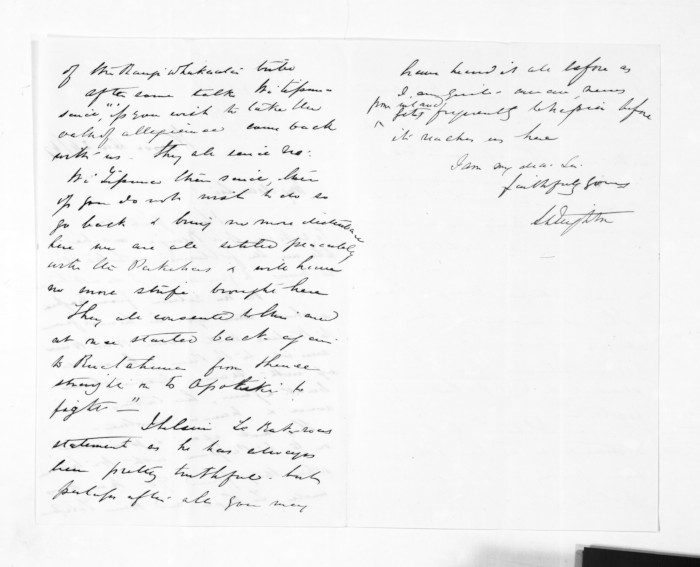 of the Rangi Whakaatai tribe
after some talk Wi Tipuna
said, "if you wish to take the
oath of allegiance come back
with us. They all said no:
Wi Tipuna then said, then
if you do not wish to do so
go back & bring no more disturbance
here we are all settled peaceably
with the Pakehas & will have
no more strife brought here
They all consented to this and
at once started back again
to Ruatahuna from thence
straight on to Opotiki to
fight—"
I believe Te statement
statement as he has always
been pretty truthful. but
perhaps after all you may
have heard it all before as
I am quite news
from inland gets frequently to Napier before
it reaches us here
I am my dear Sir
faithfully yours
S Deighton